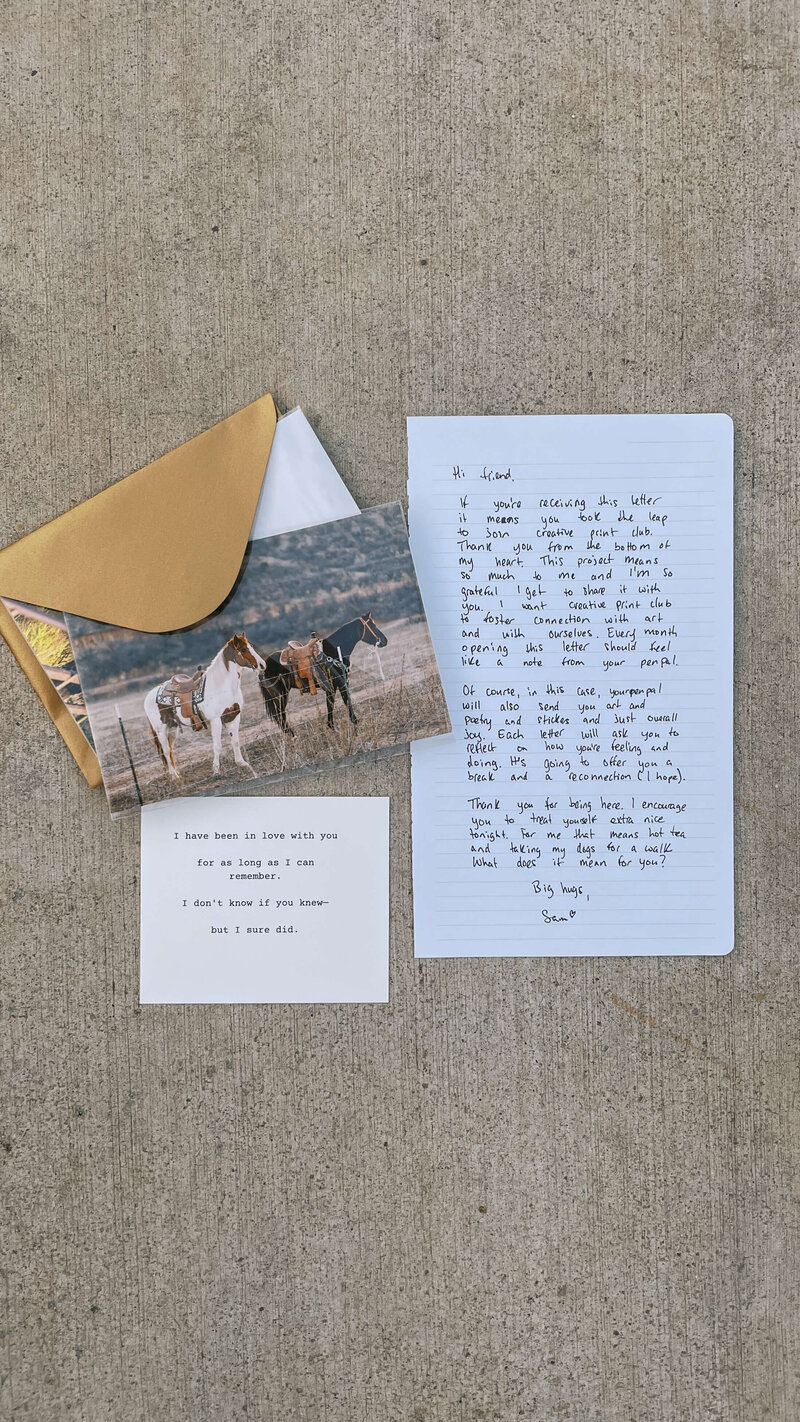 Hi friend,
If you're receiving this letter
it means you took the leap
to join creative print club.
Thank you from the bottom of
my heart. This project means
so much to me and I'm so
grateful I get to share it with
you. I want creative print club
to foster connection with art
and with ourselves. Every month
opening this letter should feel
like a note from your penpal.
Of course, in this case, your penpal
will also send you art and
poetry and stickers and just overall
joy. Each letter will ask you to
reflect on how you're feeling and
doing. It's going to offer you a
break and a reconnection (I hope).
Thank you for being here. I encourage
you to treat yourself extra nice
tonight. For me that means hot tea
and taking my dogs for a walk.
What does it mean for you?
Big hugs,
Sam
I have been in love with you
for as long as I can
remember.
I don't know if you knew—
but I sure did.